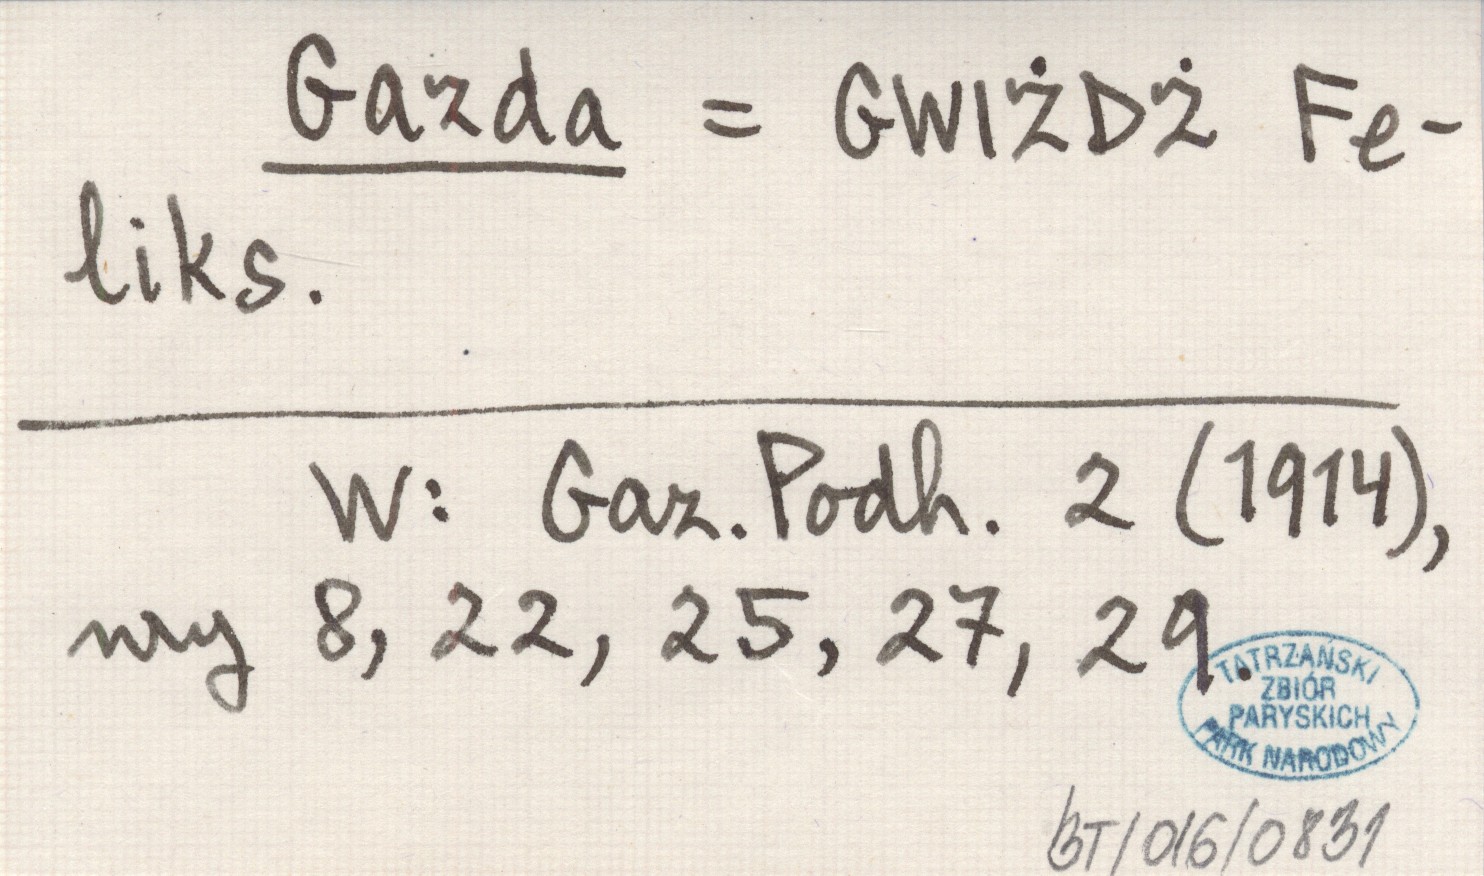 Gazda = GWIŻDŻ Fe-
liks.
W: Gaz. Podh. 2 (1914),
nry 8, 22, 25, 27, 29.
TATRZAŃSKI
ZBIÓR
PARYSKICH
PARK NARODOWY
BT/016/0831